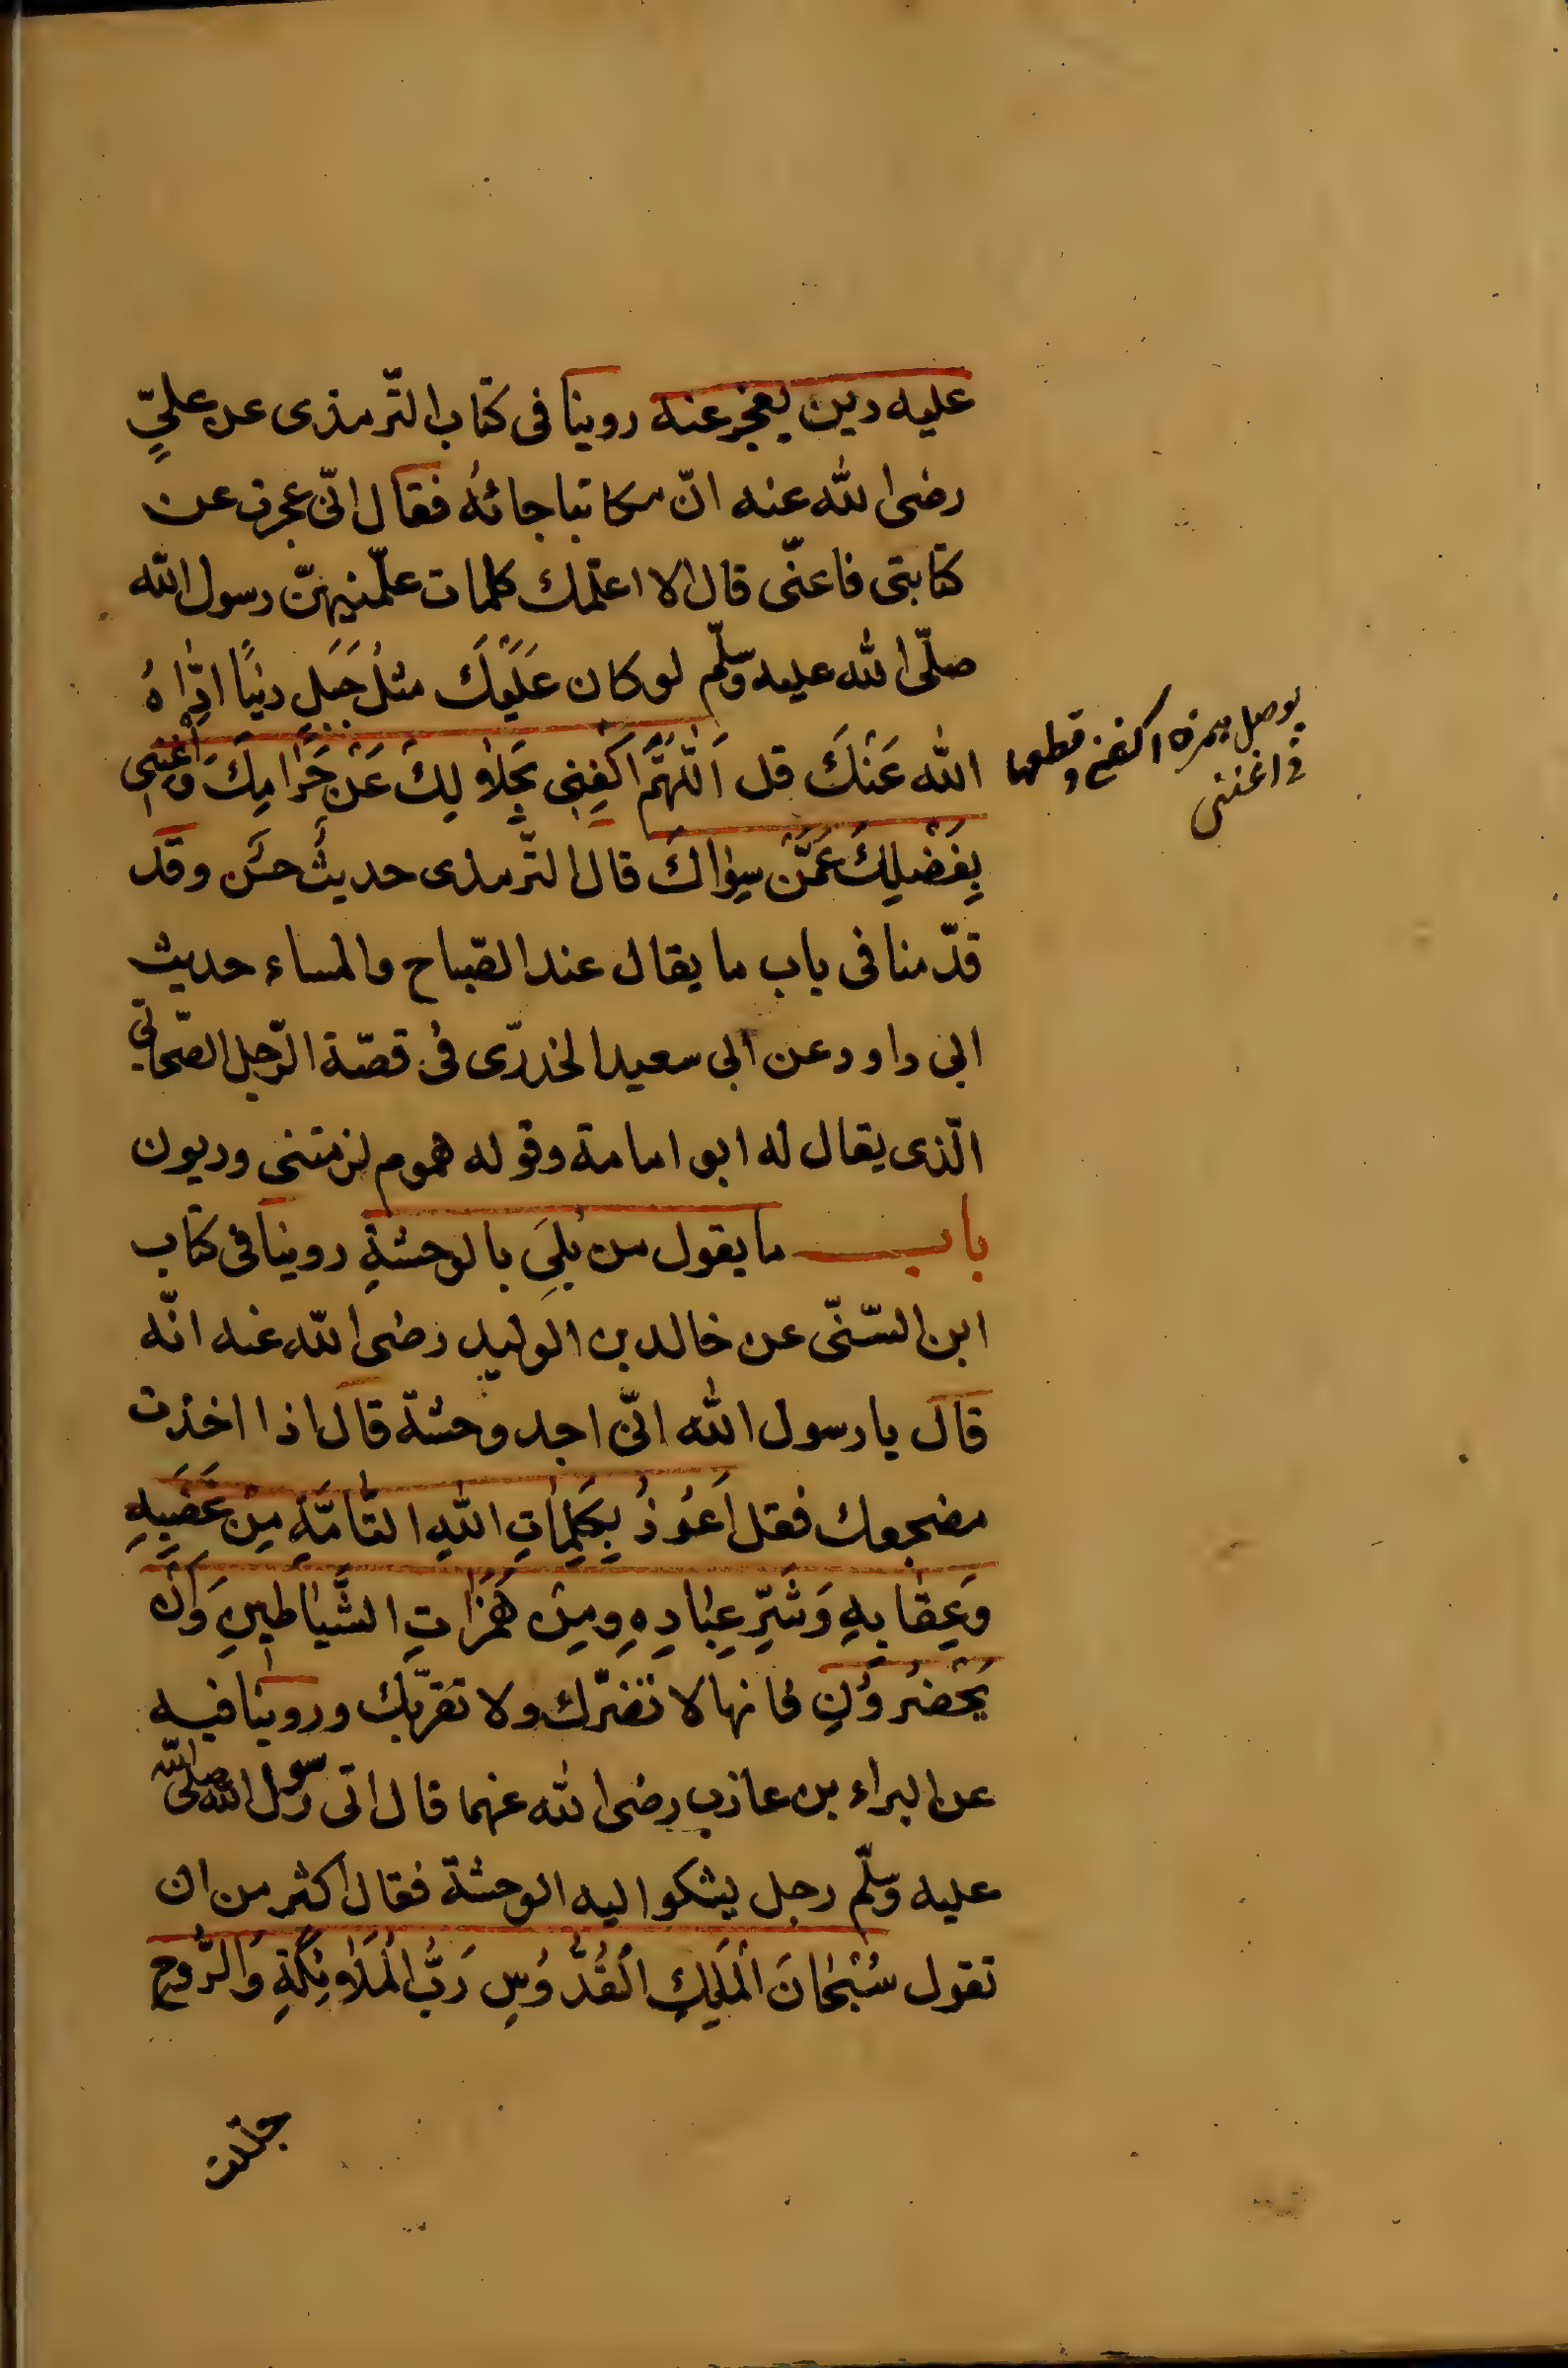 عليه دين يعجز عنه روينا فى كتاب الترّمذى عن علىٍّ
رضى الله عنه انّ مكاتبا جائهُ فقال انّى عجزت عن
كتابتى فاعنّى قال الا اعلّمك كلمات علّمنيهنّ رسول الله
صلّى الله عليه وسلّم لو كان عَلَيْكَ مثلُ جَبَلٍ دَيْنًا ادّٰاهُ
الله عَنْكَ قل اَللّٰهُمَّ اكْفِنِى بِحَلٰالِكَ عَنْ حَرٰامِكَ وَأَغْنِنِى
بِفَضْلِكَ عَمَّنْ سِوٰاكَ قال الترّمذى حديثٌ حسَن وقد
قدّمنا فى باب ما يقال عند الصّباح والمساء حديث
ابى داود عن ابى سعيد الخدرىّ فى قصّة الرّجل الصّحابىّ
الّذى يقال له ابو امامة وقوله هموم لزمتنى وديون
باب ما يقول من بُلِىَ بالوحشةِ روينا فى كتاب
ابن السّنّى عن خالد بن الوليد رضى الله عنه انّه
قال يا رسول الله انّى اجد وحشة قال اذا اخذت
مضجعك فقل اَعُوْذُ بِكَلِمٰاتِ اللهِ التّامَّةِ مِنْ غَضَبِهِ
وَعِقٰابِهِ وَشَرِّ عِبٰادِهِ وَمِنْ هَمَزٰاتِ الشَّيٰاطِينِ وَأَنْ
يَحْضُرُوْنِ فانها لا تضرّك ولا تقرّبك وروينا فيه
عن البراء بن عازب رضى الله عنهما قال اتى رسول الله صلّى الله
عليه وسلّم رجل يشكو اليه الوحشة فقال اكثر من ان
تقول سُبْحٰانَ الْمَلِكِ الْقُدُّوْسِ رَبُّ الْمَلٰاۤئِكَةِ وَالرُّوحِ
جللت
يوصل بهمزة اكفنى وقطعها
فى اغننى